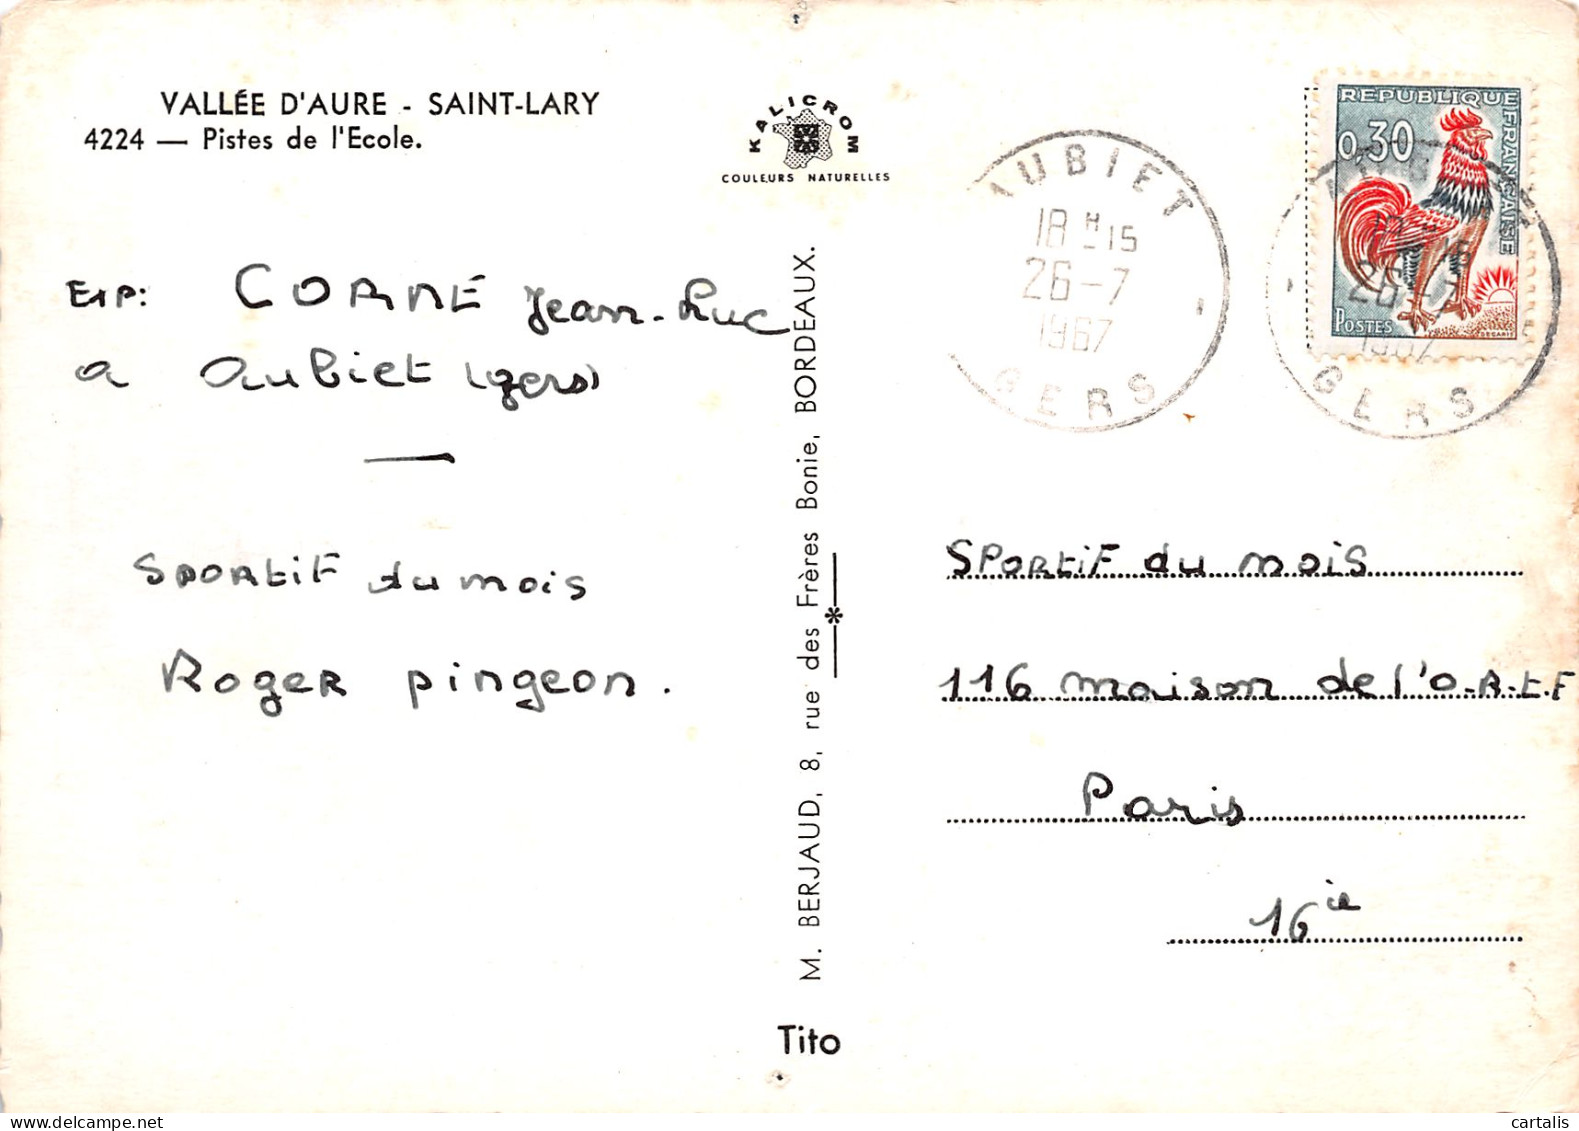 VALLÉE D'AURE - SAINT-LARY
4224 — Pistes de l'Ecole.
KALICROM
COULEURS NATURELLES
Exp: CORNE Jean-Luc
a Aubiet (gers)
—
SPORtiF du mois
ROGER pingeon.
M. BERJAUD, 8, rue des Frères Bonie, BORDEAUX.
Tito
AUBIET
18 H 15
26-7
1967
GERS
REPUBLIQUE FRANÇAISE
0,30
POSTES
26-7
1967
GERS
SPORtiF du mois
116 maison de l'O.R.t.F
Paris
16 ie
cartalis